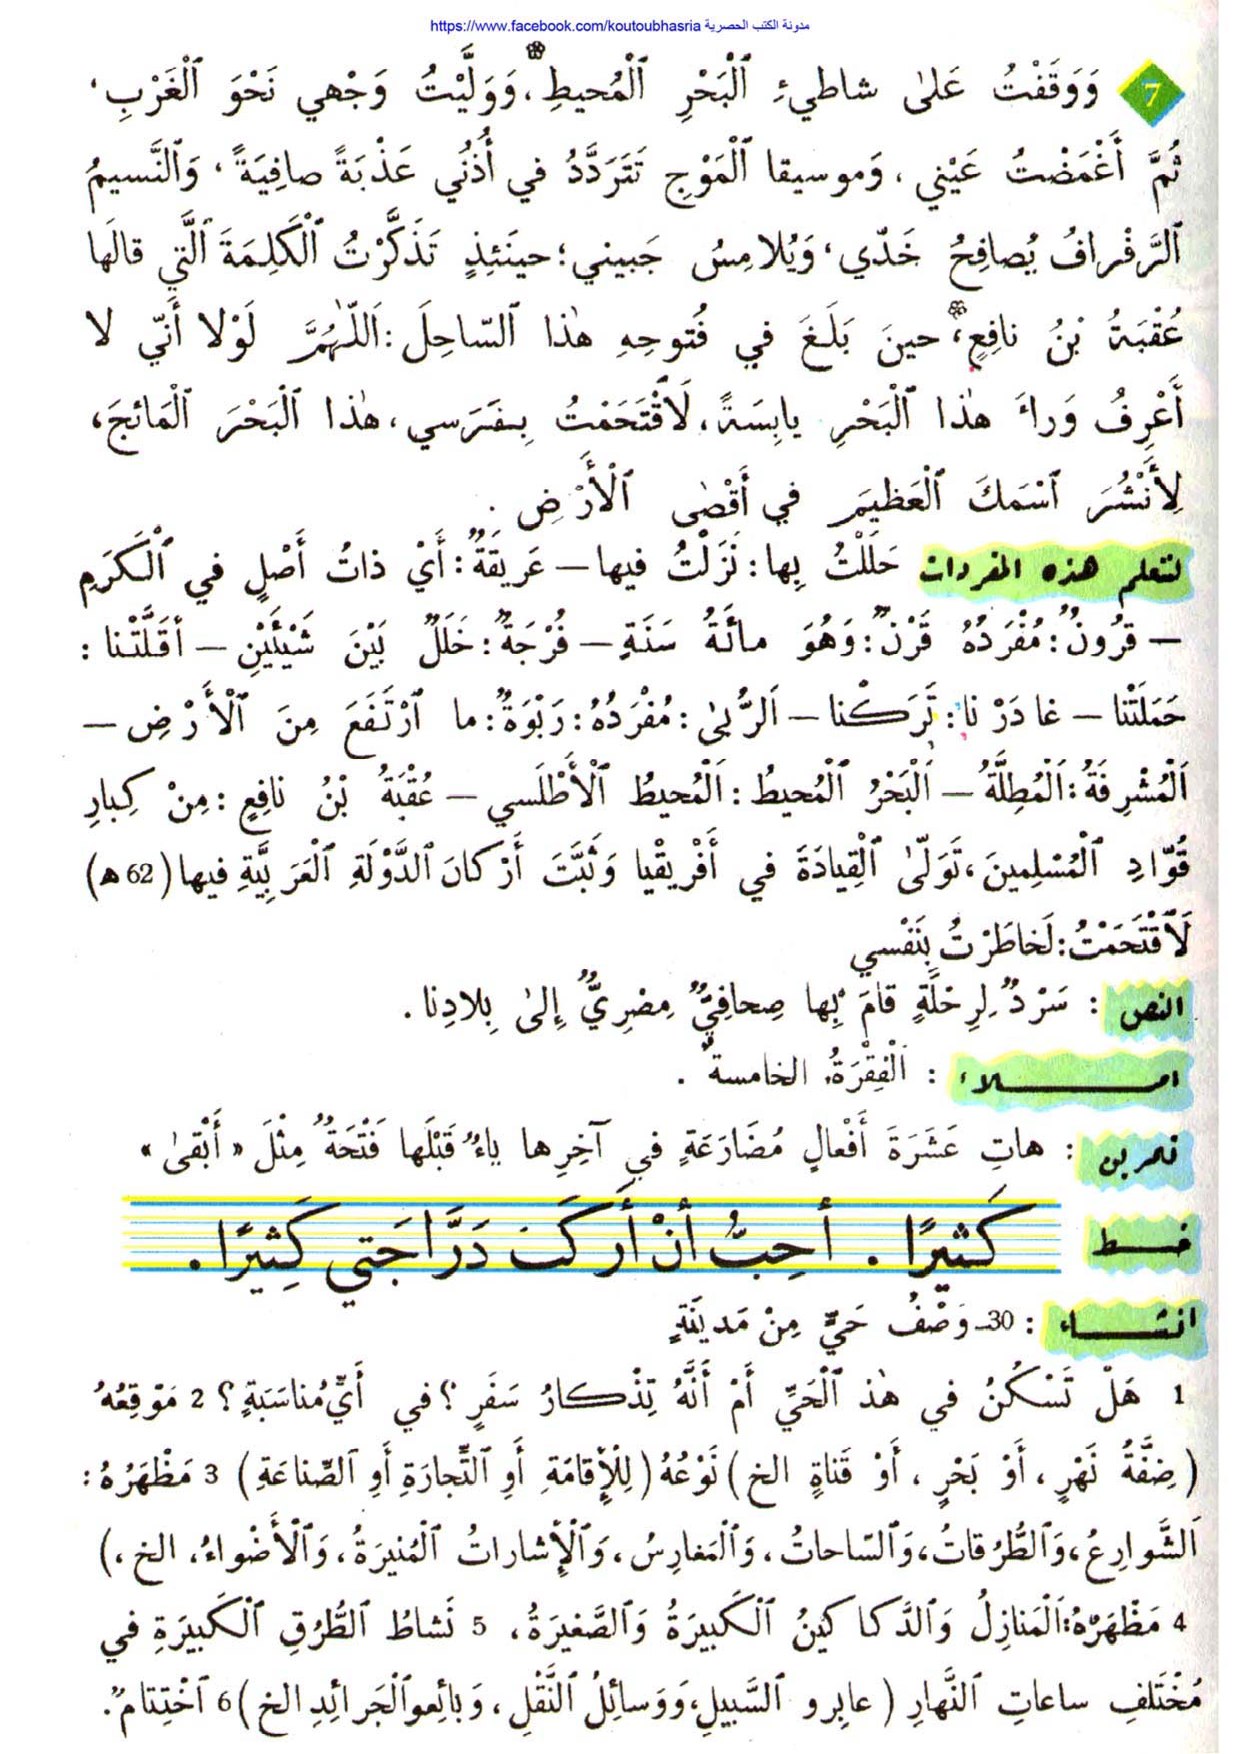 مدونة الكتب الحصرية https://www.facebook.com/koutoubhasria
7 وَوَقَفْتُ عَلىٰ شاطِيءِ ٱلْبَحْرِ ٱلْمُحيطِ، وَوَلَّيْتُ وَجْهي نَحْوَ ٱلْغَرْبِ،
ثُمَّ أَغْمَضْتُ عَيْني، وَموسيقا ٱلْمَوْجِ تَتَرَدَّدُ في أُذُني عَذْبَةً صافِيَةً، وَٱلنَّسيمُ
ٱلرَّفْرافُ يُصافِحُ خَدّي، وَيُلامِسُ جَبيني؛ حينَئِذٍ تَذَكَّرْتُ ٱلْكَلِمَةَ ٱلَّتي قالَها
عُقْبَةُ بْنُ نافِعٍ، حينَ بَلَغَ في فُتوحِهِ هٰذا ٱلسّاحِلَ: اَللّٰهُمَّ لَوْلا أَنّي لا
أَعْرِفُ وَراءَ هٰذا ٱلْبَحْرِ يابِسَةً، لَاَقْتَحَمْتُ بِفَرَسي، هٰذا ٱلْبَحْرَ ٱلْمَائجَ،
لِأَنْشُرَ ٱسْمَكَ ٱلْعَظيمَ في أَقْصٰى ٱلْأَرْضِ.
لتعلم هذه المفردات حَلَلْتُ بِها: نَزَلْتُ فيها – عَريقَةٌ: أَيْ ذاتُ أَصْلٍ في ٱلْكَرَمِ
– قُرُونٌ: مُفْرَدُهُ قَرْنٌ: وَهُوَ مائَةُ سَنَةٍ – فُرْجَةٌ: خَلَلٌ بَيْنَ شَيْئَيْنِ – أقَلَّتْنا:
حَمَلَتْنا – غادَرْنا: تَرَكْنا – اَلرُّبىٰ: مُفْرَدُهُ: رَبْوَةٌ: ما ٱرْتَفَعَ مِنَ ٱلْأَرْضِ –
اَلْمُشْرِفَةُ: اَلْمُطِلَّةُ – اَلْبَحْرُ ٱلْمُحيطُ: اَلْمُحيطُ ٱلْأَطْلَسي – عُقْبَةُ بْنُ نافِعٍ: مِنْ كِبارِ
قُوّادِ ٱلْمُسْلِمينَ، تَوَلّىٰ ٱلْقِيادَةَ في أَفْريقْيا وَثَبَّتَ أَرْكانَ ٱلدَّوْلَةِ ٱلْعَرَبِيَّةِ فيها (62 ه)
لَاَقْتَحَمْتُ: لَخاطَرْتُ بِنَفْسي
النص : سَرْدٌ لِرِحْلَةٍ قامَ بِها صِحافِيٌّ مِصْرِيٌّ إِلىٰ بِلادِنا.
امـــلاء : اَلْفِقْرَةُ الخامسة.
تمرين : هاتِ عَشَرَةَ أَفْعالٍ مُضَارَعَةٍ في آخِرِها ياءٌ قَبْلَها فَتْحَةٌ مِثْلَ « أَبْقىٰ »
خـط كَثيرًا . أحِبُّ أنْ أَركَبَ دَرَّاجَتي كَثِيرًا .
انشـــاء : 30ـ وَصْفُ حَيٍّ مِنْ مَدينَةٍ
1 هَلْ تَسْكُنُ في هٰذ ٱلْحَيِّ أَمْ أَنَّهُ تِذْكارُ سَفَرٍ؟ في أَيِّ مُناسَبَةٍ؟ 2 مَوْقِعُهُ
(ضَفَّةُ نَهْرٍ، أَوْ بَحْرٍ، أَوْ قَناةٍ الخ) نَوْعُهُ (لِلْإِقامَةِ أَوِ ٱلتِّجارَةِ أَوِ ٱلصِّناعَةِ) 3 مَظْهَرُهُ:
اَلشَّوارِعُ، وَٱلطُّرُقاتُ، وَٱلسّاحاتُ، وَٱلْمَغارِسُ، وَٱلْإِشاراتُ ٱلْمُنيرَةُ، وَٱلْأَضْواءُ، الخ،)
4 مَظْهَرُهُ: اَلْمَنازِلُ وَٱلدَّكاكينُ ٱلْكَبيرَةُ وَٱلصَّغيرَةُ، 5 نَشاطُ ٱلطُّرُقِ ٱلْكَبيرَةِ في
مُخْتَلفِ ساعاتِ ٱلنَّهارِ (عابِرو ٱلسَّبيلِ، وَوَسائِلُ ٱلنَّقْلِ، وَبائِعو ٱلْجَرائِدِ الخ) 6 ٱخْتِتامٌ.